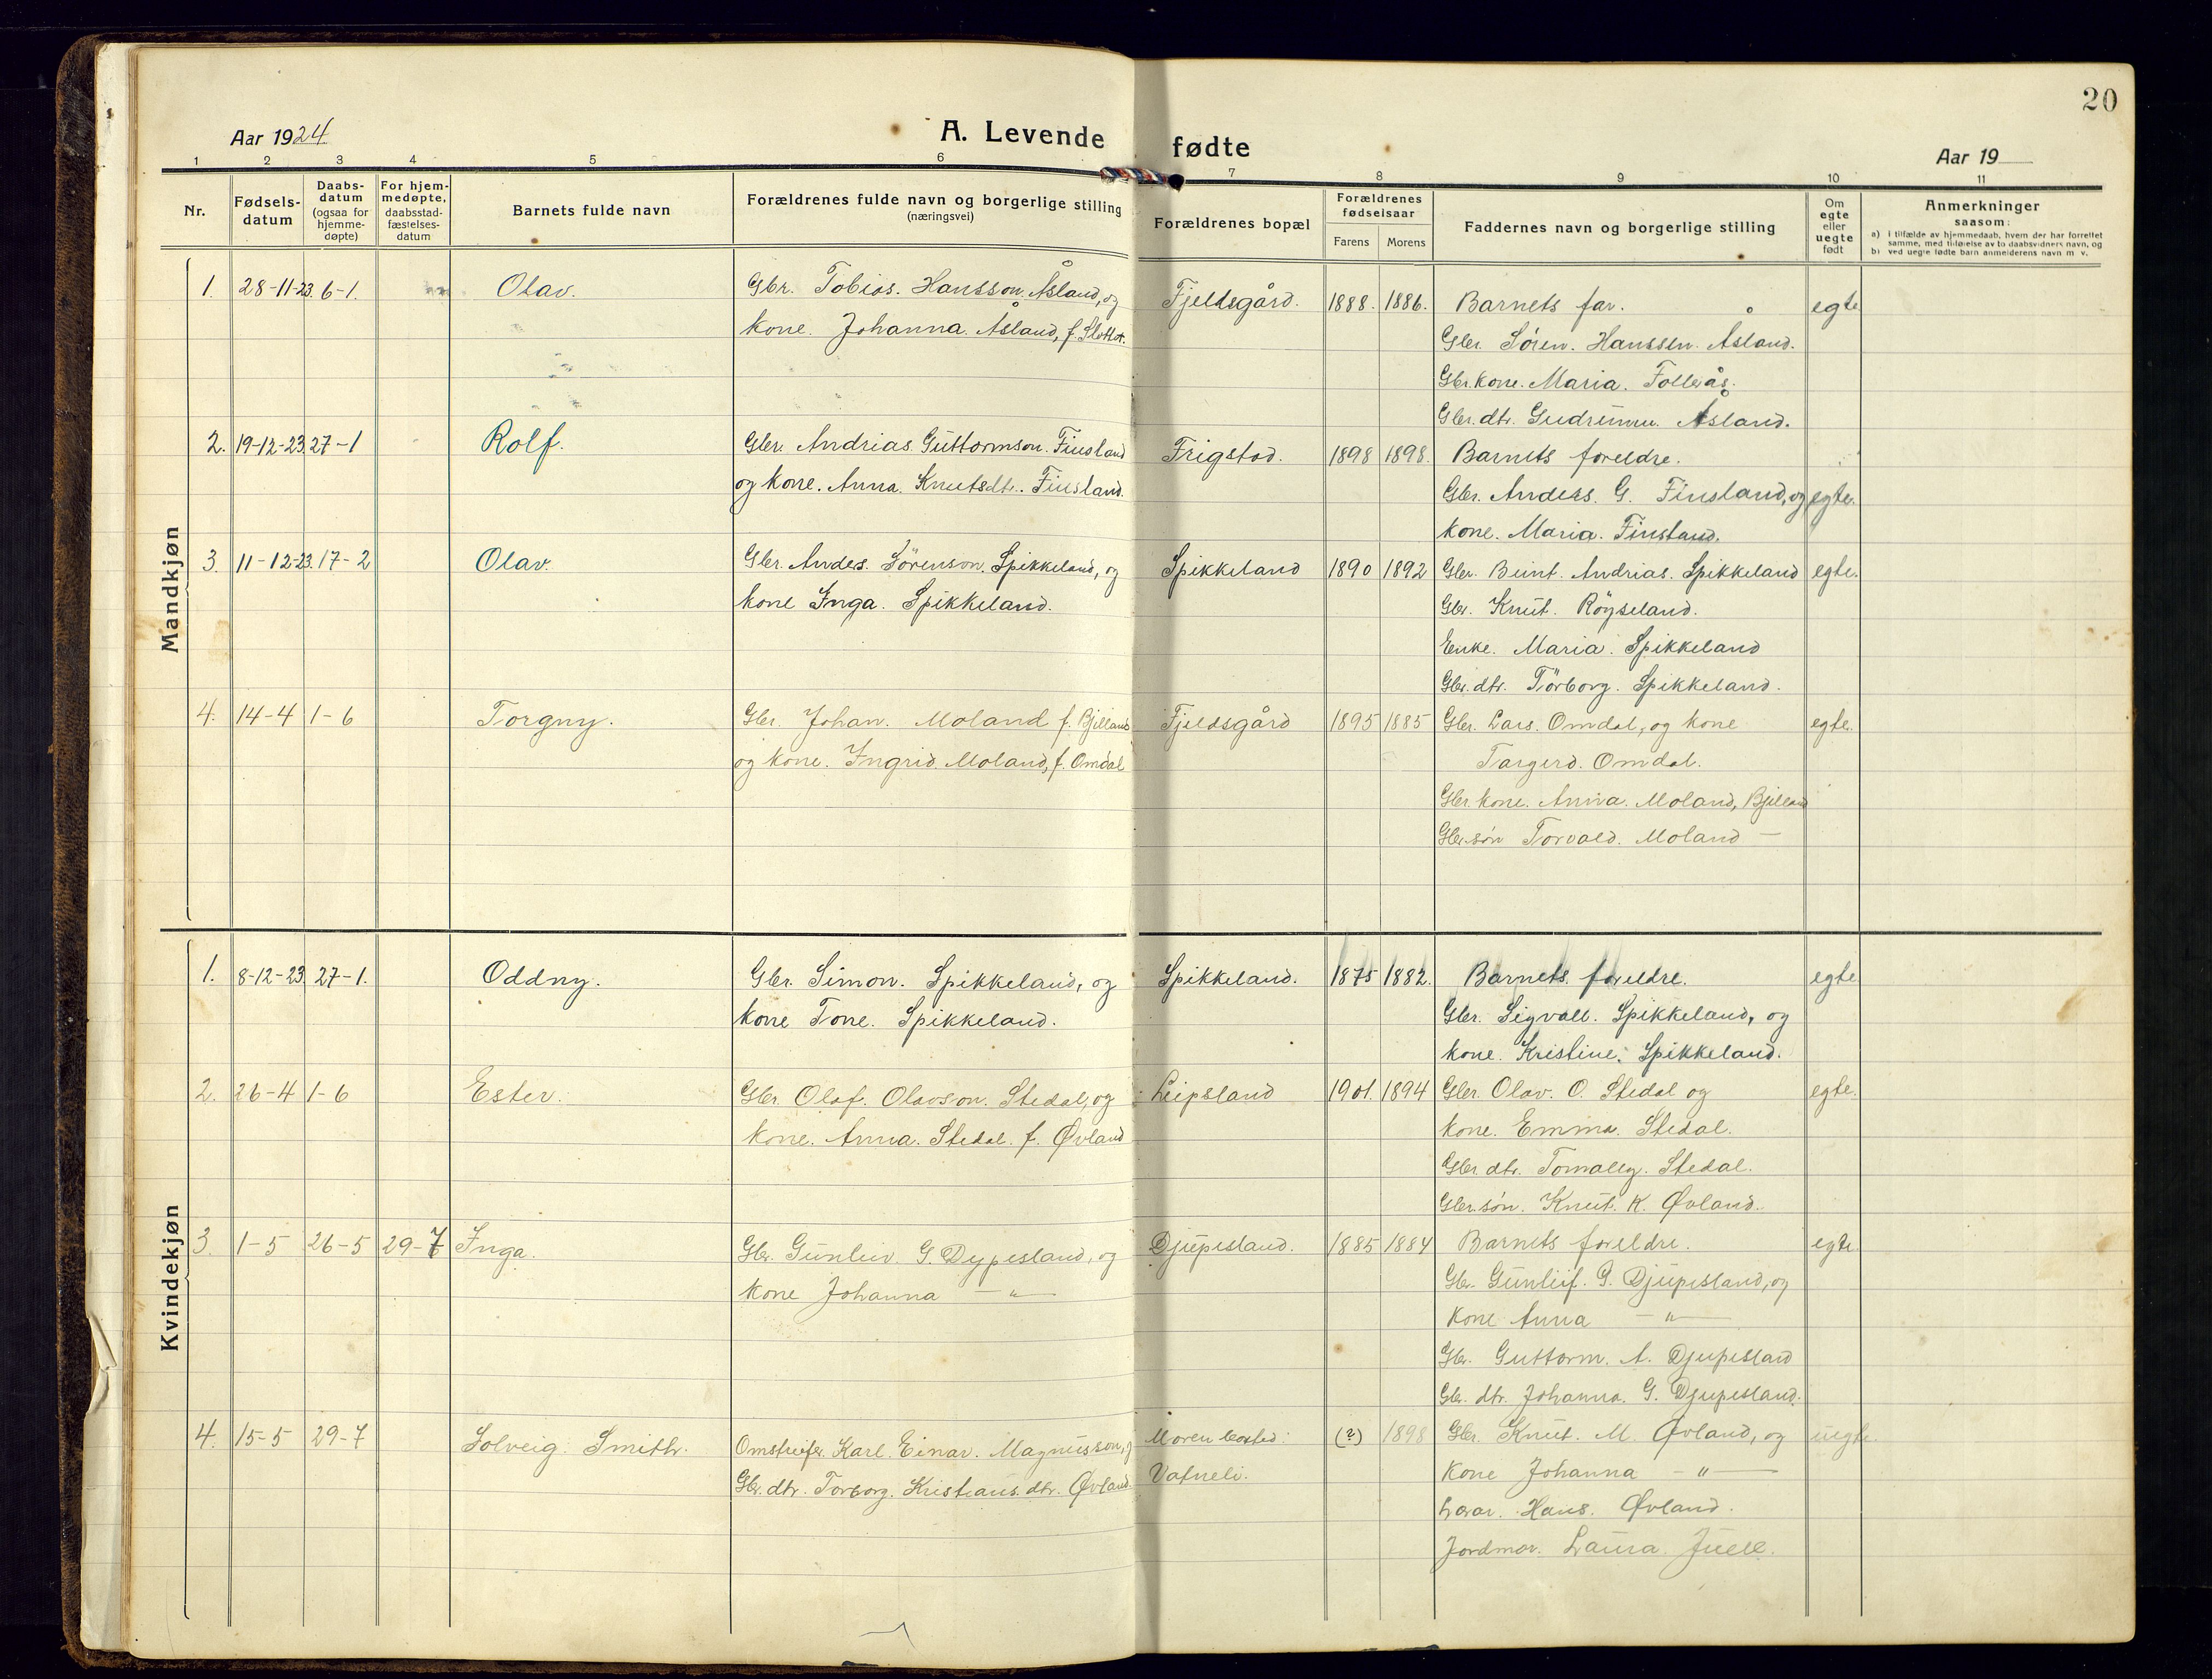 20
Aar 1924.
A. Levende fødte
Aar 19
1 2 3 4 5 6 7 8 9 10 11
Nr.
Fødsels-
datum
Daabs-
datum
(ogsaa for
hjemme-
døpte)
For hjem-
medøpte,
daabsstad-
fæstelses-
datum
Barnets fulde navn
Forældrenes fulde navn og borgerlige stilling
(næringsvei)
Forældrenes bopæl
Forældrenes
fødselsaar
Farens Morens
Faddernes navn og borgerlige stilling
Om
egte
eller
uegte
født
Anmerkninger
saasom:
a) i tilfælde av hjemmedaab, hvem der har forrettet
samme, med tilføielse av to daabsvidners navn, og
b) ved uegte fødte barn anmelderens navn m. v.
Mandkjøn
1. 28-11-23. 6-1. Olav. Gbr. Tobias. Hansson. Åsland, og Fjeldsgård. 1888. 1886. Barnets far. egte
kone. Johanna. Åsland, f. Slottet. Gbr. Søren. Hanssen. Åsland.
Gbr. kone. Maria. Follerås.
Gbr. dtr. Gudrunn. Åsland.
2. 19-12-23. 27-1 Rolf. Gbr. Andrias. Guttormson. Finsland Frigstad. 1898 1898. Barnets foreldre.
og kone. Anna. Knutsdtr. Finsland. Gbr. Anders. G. Finsland, og egte.
kone. Maria. Finsland.
3. 11-12-23. 17-2 Olav. Gbr. Anders. Sørenson. Spikkeland, og Spikkeland 1890 1892 Gbr. Beint. Andrias. Spikkeland egte.
kone Inga. Spikkeland. Gbr. Knut. Röyseland.
Enke. Maria. Spikkeland
Gbr. dtr. Törborg. Spikkeland.
4. 14-4 1-6 Torgny. Gbr. Johan. Moland f. Bjelland Fjeldsgård 1895 1885 Gbr. Lars. Omdal, og kone egte.
og kone. Ingrid Moland, f. Omdal Targerd. Omdal.
Gbr. kone. Anna. Moland, Bjelland
Gbr. søn Torvald. Moland —
Kvindekjøn
1. 8-12-23. 27-1. Oddny. Gbr. Simon. Spikkeland, og Spikkeland. 1875 1882. Barnets foreldre. egte
kone Tone. Spikkeland. Gbr. Sigvall. Spikkeland, og
kone. Kristine. Spikkeland.
2. 26-4 1-6 Ester. Gbr. Olaf. Olavson. Stedal, og Leipsland 1901. 1894 Gbr. Olav. O. Stedal og egte.
kone. Anna. Stedal. f. Øvland kone. Emma. Stedal.
Gbr. dtr. Stedal.
Gbr. søn. Knut. K. Øvland.
3. 1-5 26-5 29-7 Inga. Gbr. Gunleiv. G. Dypesland, og Djupesland. 1885 1884 Barnets foreldre. egte
kone Johanna — " — Gbr. Gunleif. G. Djupesland, og
kone Anna — " —
Gbr. Guttorm. A. Djupesland
Gbr. dtr. Johanna. G. Djupesland.
4. 15-5 29-7 Solveig. Smith. Omstreifer. Karl. Einar. Magnusson, og Moren bosted: (?) 1898 Gbr. Knut. M. Øvland, og uegte.
Gbr. dtr. Torborg. Kristians. dtr. Øvland. Vatneli. kone Johanna — " —
Hans. Øvland.
Jordmor. Laura. Juell.